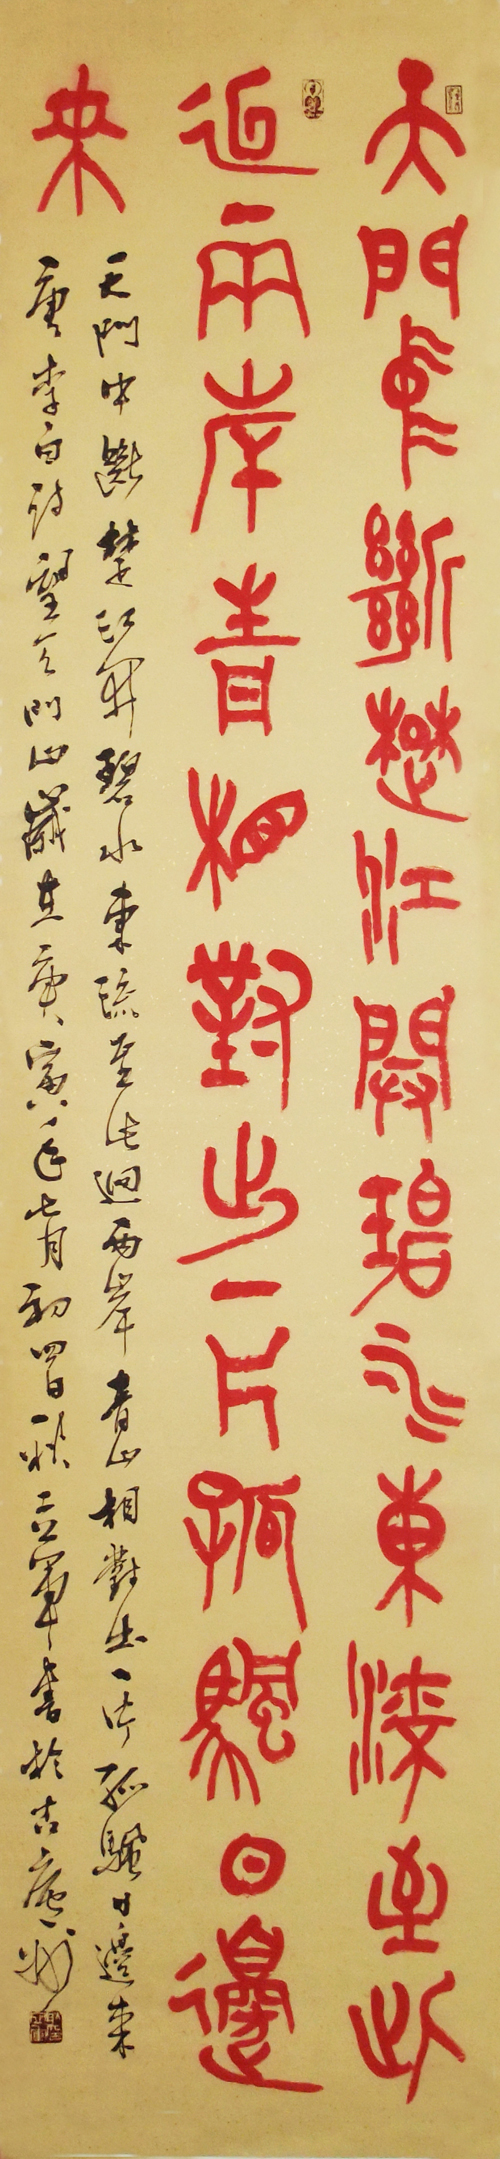 天門中斷楚江開碧水東流至此
迴兩岸青相對出一片孤颿日邊
來
天門中斷楚江開碧水東流至此迴兩岸青山相對出一片孤颿日邊來
唐李白詩望天門山歲在庚寅年七月初四日秋立軍書於古